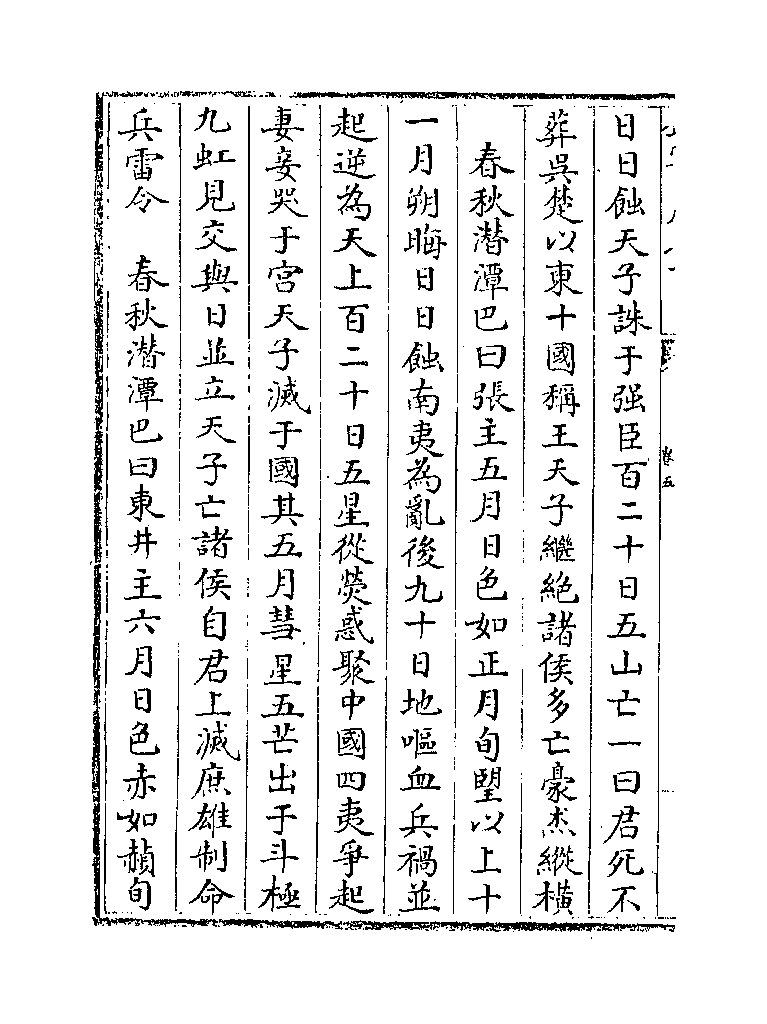 日日蝕天子誅于强臣百二十日五山亡一曰君死不
葬吳楚以東十國稱王天子繼絶諸侯多亡豪杰縱橫
春秋潜潭巴曰張主五月日色如正月旬朢以上十
一月朔晦日日蝕南夷為亂後九十日地嘔血兵禍並
起逆為天上百二十日五星從熒惑聚中國四夷爭起
妻妾哭于宮天子滅于國其五月彗星五芒出于斗極
九虹見交與日並立天子亡諸侯自君上滅庶雄制命
兵雷令　春秋潜潭巴曰東井主六月日色赤如赬旬
卷五